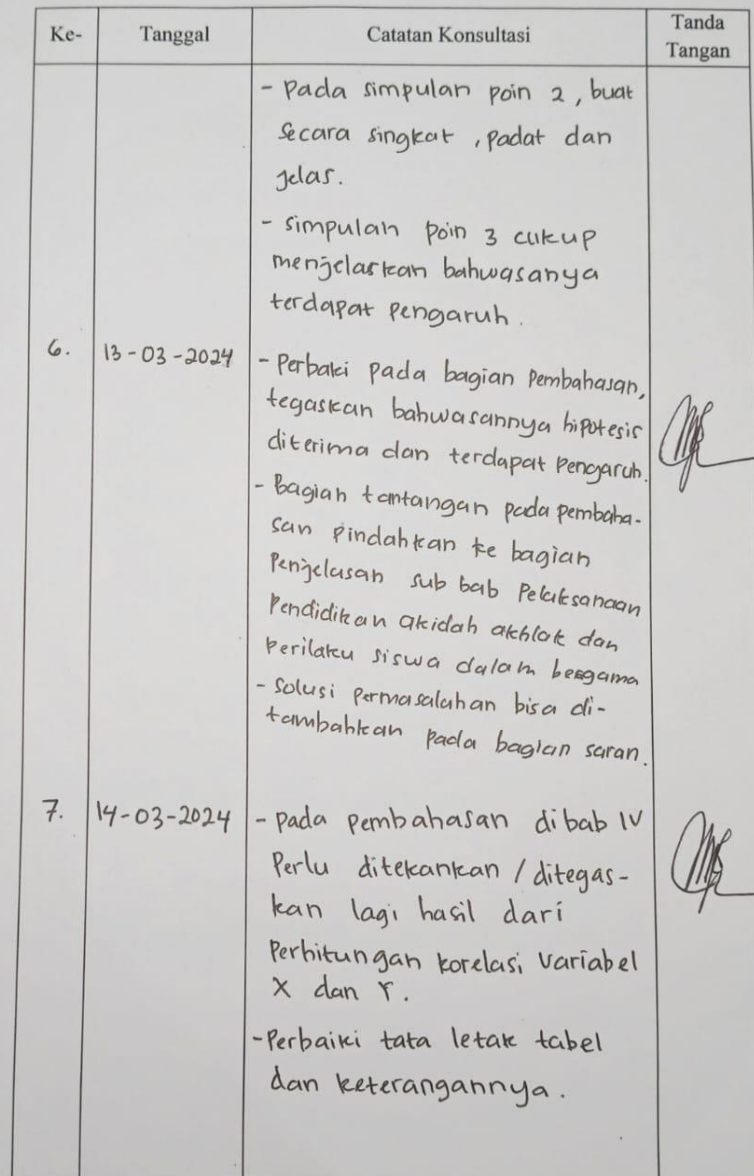 Ke- Tanggal Catatan Konsultasi Tanda Tangan
- Pada simpulan poin 2, buat
secara singkat, padat dan
jelas.
- simpulan poin 3 cukup
menjelaskan bahwasanya
terdapat pengaruh.
6. 13-03-2024 - Perbaki pada bagian Pembahasan,
tegaskan bahwasannya hipotesis
diterima dan terdapat pengaruh.
- Bagian tantangan pada pembaha-
san pindahkan ke bagian
Penjelasan sub bab Pelaksanaan
Pendidikan akidah akhlak dan
Perilaku siswa dalam beagama
- Solusi Permasalahan bisa di-
tambahkan pada bagian saran.
7. 14-03-2024 - Pada pembahasan dibab IV
Perlu ditekankan / ditegas-
kan lagi hasil dari
Perhitungan korelasi variabel
X dan Y.
- Perbaiki tata letak tabel
dan keterangannya.